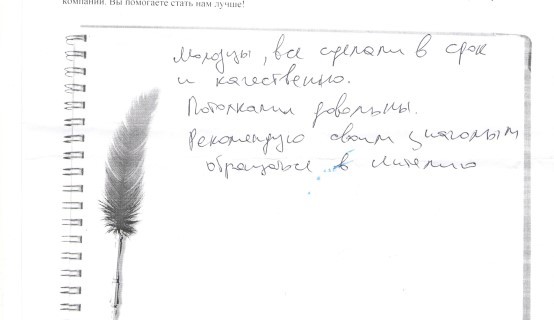 компании. Вы помогаете стать нам лучше!
Молодцы, все сделали в срок
и качественно.
Потолками довольны.
Рекомендую своим знакомым
обращаться в